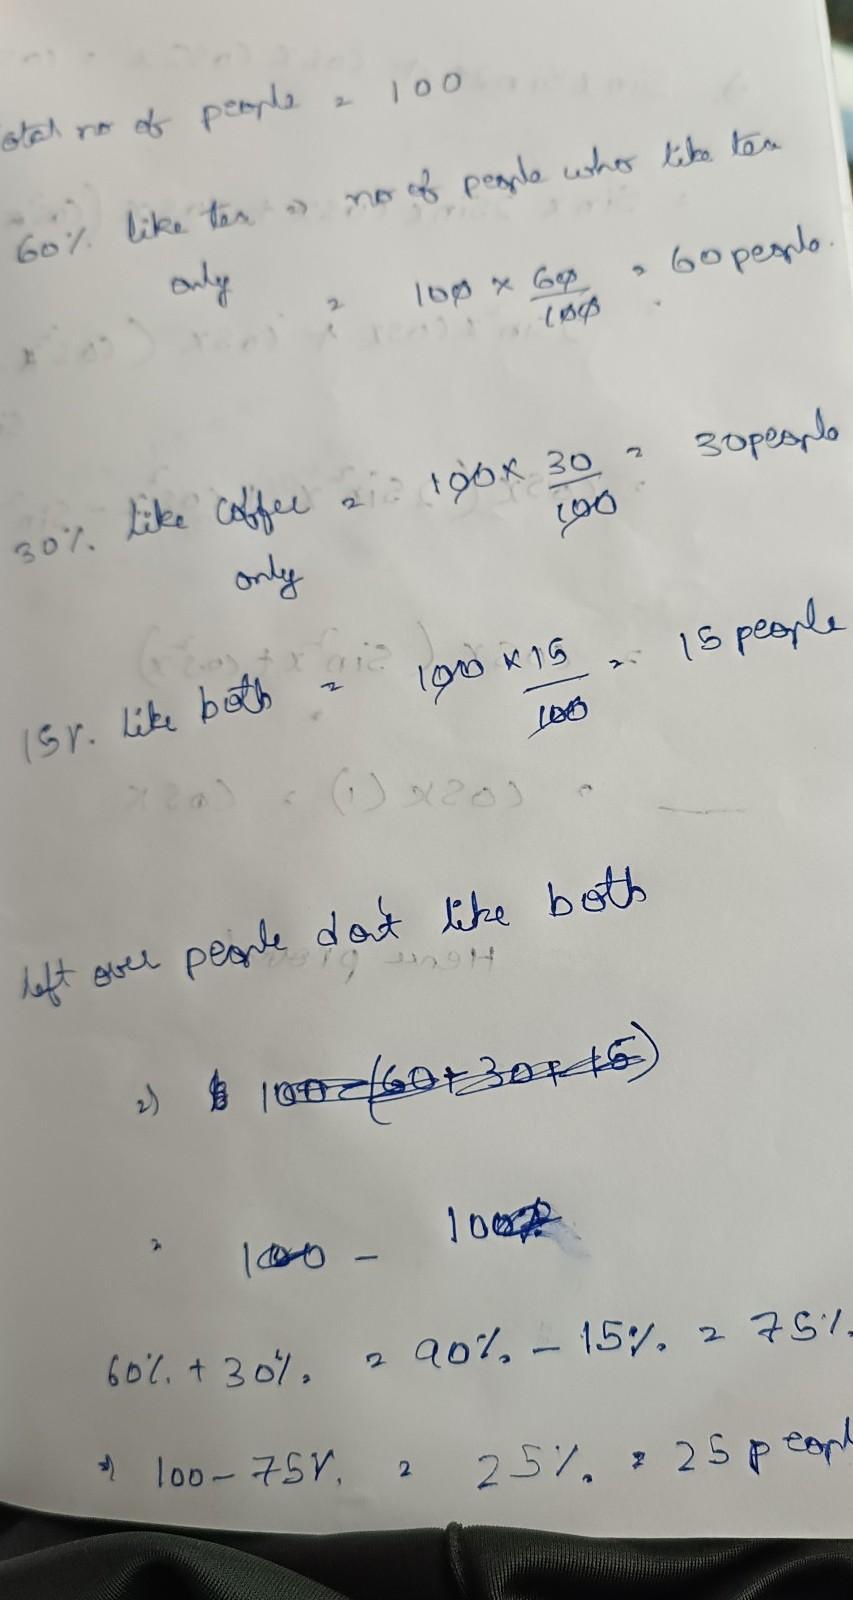 otal no of people = 100
60% like tea => no of people who like tea
only = 100 × 60/100 = 60 people.
30% like coffee = 100 × 30/100 = 30 people
only
15%. like both = 100 × 15/100 = 15 people
left over people don't like both
=) 100-(60+30+15)
= 100 - 100%
60% + 30% = 90% - 15% = 75%
=) 100 - 75%. = 25% = 25 peopl